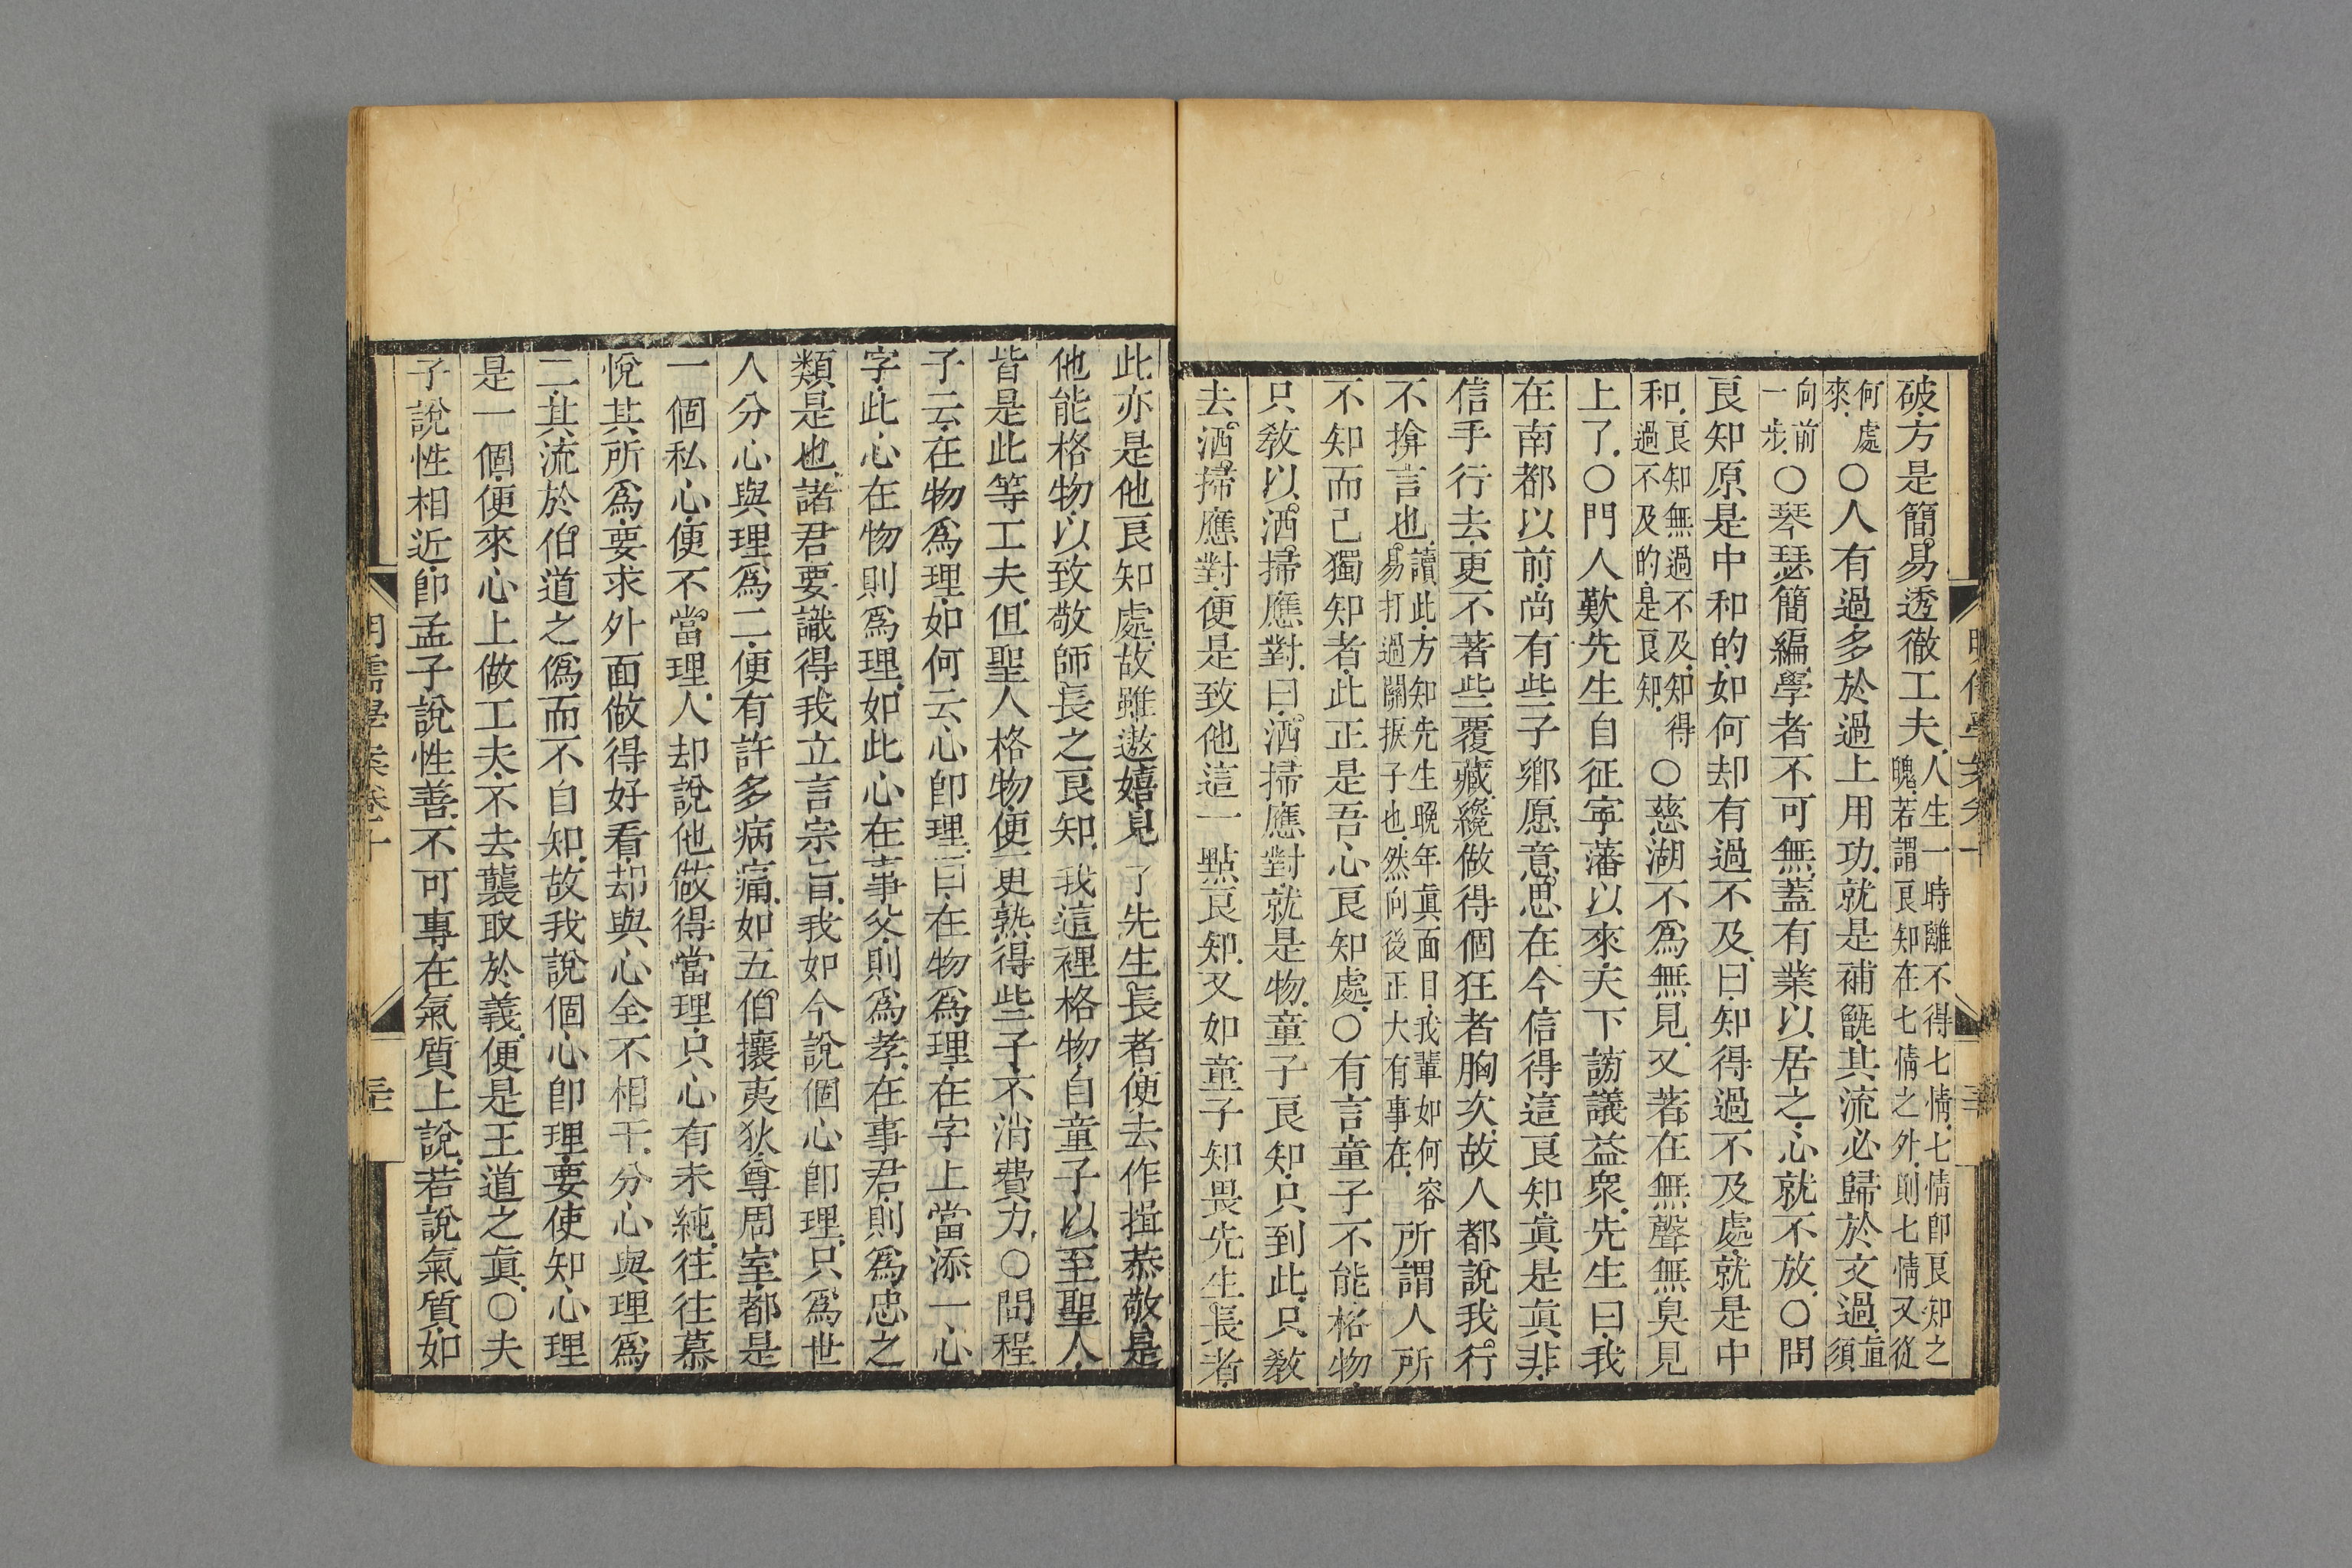 破方是簡易透徹工夫人生一時離不得七情七情卽良知之
魄若謂良知在七情之外則七情又從
何處
來○人有過多於過上用功就是補甑其流必歸於文過直須
向前
一步○琴瑟簡編學者不可無蓋有業以居之心就不放○問
良知原是中和的如何却有過不及曰知得過不及處就是中
和良知無過不及知得
過不及的是良知○慈湖不爲無見又著在無聲無臭見
上了○門人歎先生自征寜藩以來天下謗議益衆先生曰我
在南都以前尚有些子鄉愿意思在今信得這良知眞是眞非
信手行去更不著些覆藏纔做得個狂者胸次故人都說我行
不揜言也讀此方知先生晚年眞面目我輩如何容
易打過關捩子也然向後正大有事在所謂人所
不知而己獨知者此正是吾心良知處○有言童子不能格物
只敎以洒掃應對曰洒掃應對就是物童子良知只到此只敎
去洒掃應對便是致他這一點良知又如童子知畏先生長者
此亦是他良知處故雖遨嬉見了先生長者便去作揖恭敬是
他能格物以致敬師長之良知我這裡格物自童子以至聖人
皆是此等工夫但聖人格物便更熟得些子不消費力○問程
子云在物爲理如何云心卽理曰在物爲理在字上當添一心
字此心在物則爲理如此心在事父則爲孝在事君則爲忠之
類是也諸君要識得我立言宗旨我如今說個心卽理只爲世
人分心與理爲二便有許多病痛如五伯攘夷狄尊周室都是
一個私心便不當理人却說他做得當理只心有未純往往慕
悅其所爲要求外面做得好看却與心全不相干分心與理爲
二其流於伯道之僞而不自知故我說個心卽理要使知心理
是一個便來心上做工夫不去襲取於義便是王道之眞○夫
子說性相近卽孟子說性善不可專在氣質上說若說氣質如
明儒學案卷十